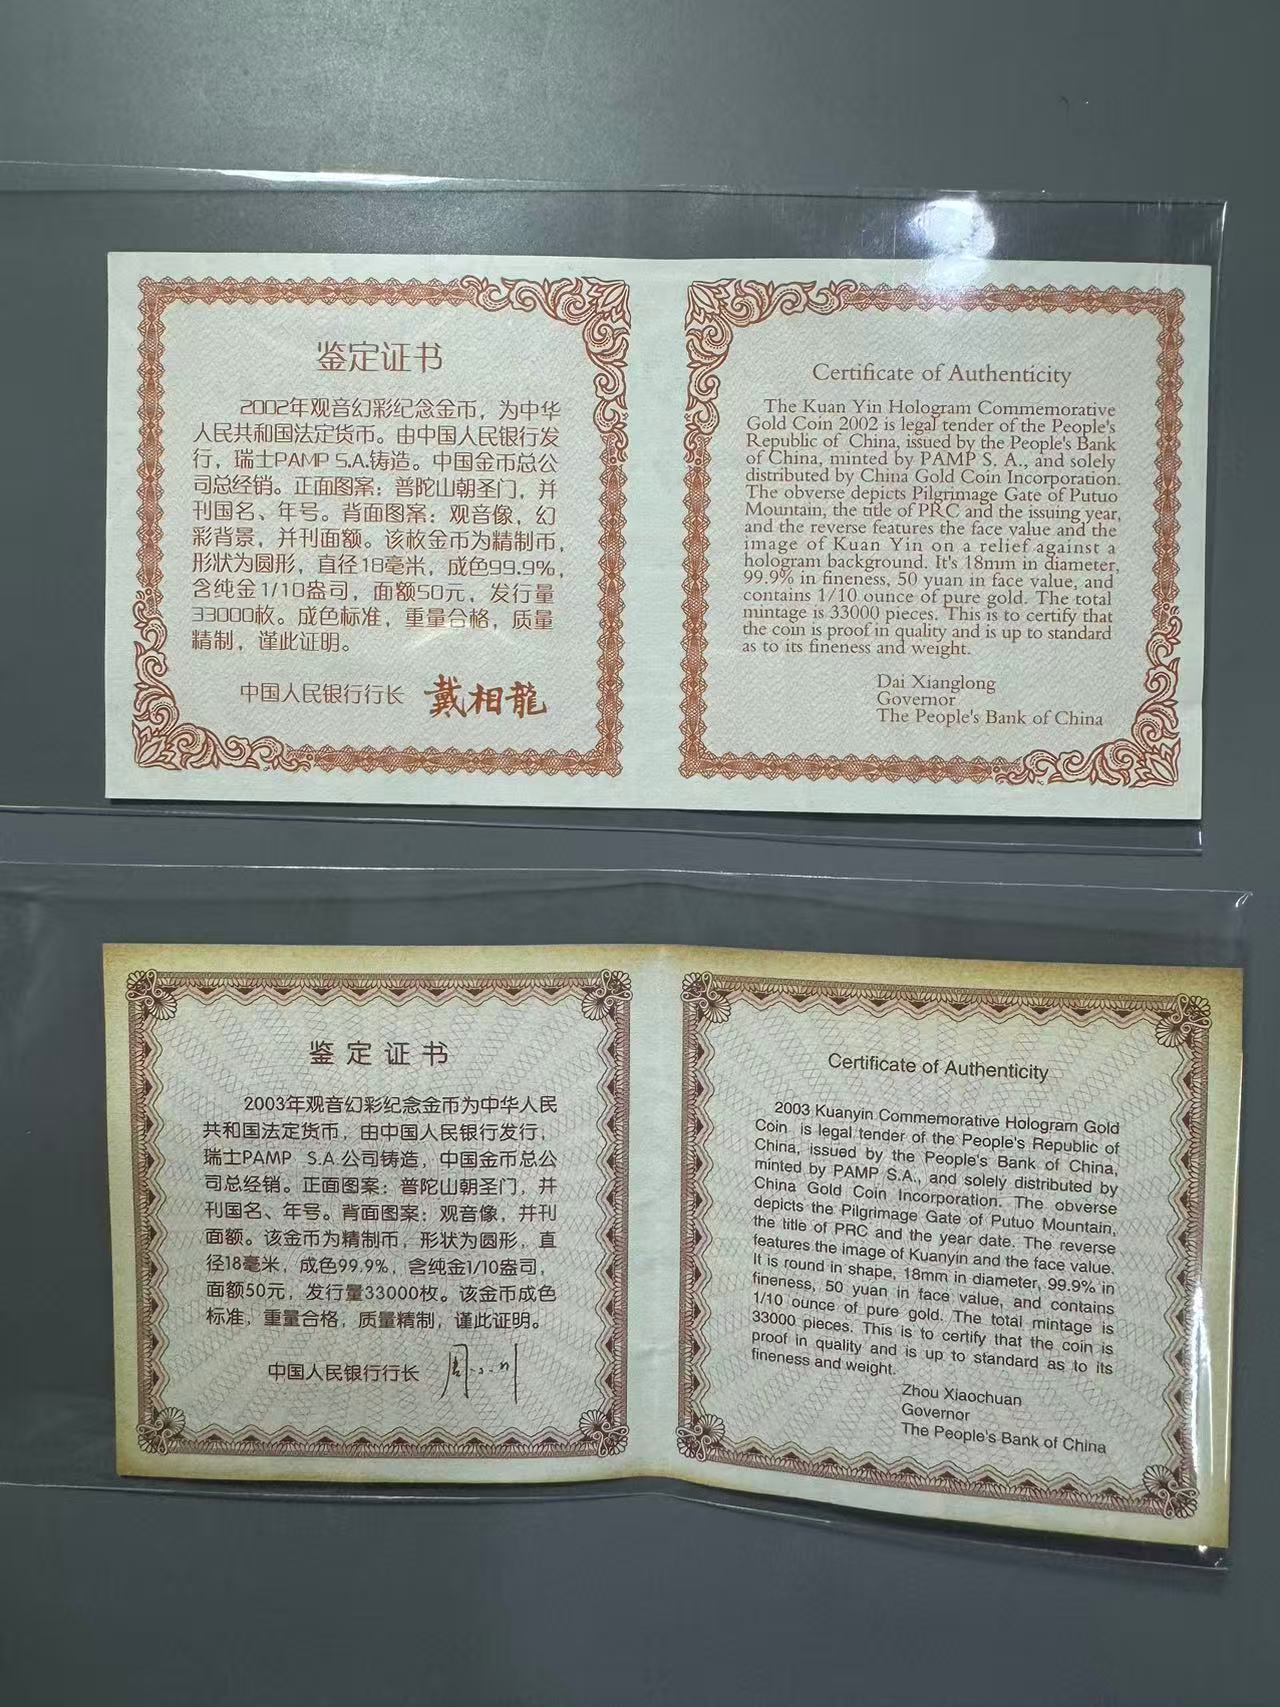 鉴定证书
2002年观音幻彩纪念金币，为中华
人民共和国法定货币。由中国人民银行发
行，瑞士PAMP S.A.铸造。中国金币总公
司总经销。正面图案：普陀山朝圣门，并
刊国名、年号。背面图案：观音像，幻
彩背景，并刊面额。该枚金币为精制币，
形状为圆形，直径18毫米，成色99.9%，
含纯金1/10盎司，面额50元，发行量
33000枚。成色标准，重量合格，质量
精制，谨此证明。
中国人民银行行长 戴相龍
Certificate of Authenticity
The Kuan Yin Hologram Commemorative
Gold Coin 2002 is legal tender of the People's
Republic of China, issued by the People's Bank
of China, minted by PAMP S. A., and solely
distributed by China Gold Coin Incorporation.
The obverse depicts Pilgrimage Gate of Putuo
Mountain, the title of PRC and the issuing year,
and the reverse features the face value and the
image of Kuan Yin on a relief against a
hologram background. It's 18mm in diameter,
99.9% in fineness, 50 yuan in face value, and
contains 1/10 ounce of pure gold. The total
mintage is 33000 pieces. This is to certify that
the coin is proof in quality and is up to standard
as to its fineness and weight.
Dai Xianglong
Governor
The People's Bank of China
鉴定证书
2003年观音幻彩纪念金币为中华人民
共和国法定货币，由中国人民银行发行，
瑞士PAMP S.A.公司铸造，中国金币总公
司总经销。正面图案：普陀山朝圣门，并
刊国名、年号。背面图案：观音像，并刊
面额。该金币为精制币，形状为圆形，直
径18毫米，成色99.9%，含纯金1/10盎司，
面额50元，发行量33000枚。该金币成色
标准，重量合格，质量精制，谨此证明。
中国人民银行行长 周小川
Certificate of Authenticity
2003 Kuanyin Commemorative Hologram Gold
Coin is legal tender of the People's Republic of
China, issued by the People's Bank of China,
minted by PAMP S.A., and solely distributed by
China Gold Coin Incorporation. The obverse
depicts the Pilgrimage Gate of Putuo Mountain,
the title of PRC and the year date. The reverse
features the image of Kuanyin and the face value.
It is round in shape, 18mm in diameter, 99.9% in
fineness, 50 yuan in face value, and contains
1/10 ounce of pure gold. The total mintage is
33000 pieces. This is to certify that the coin is
proof in quality and is up to standard as to its
fineness and weight.
Zhou Xiaochuan
Governor
The People's Bank of China